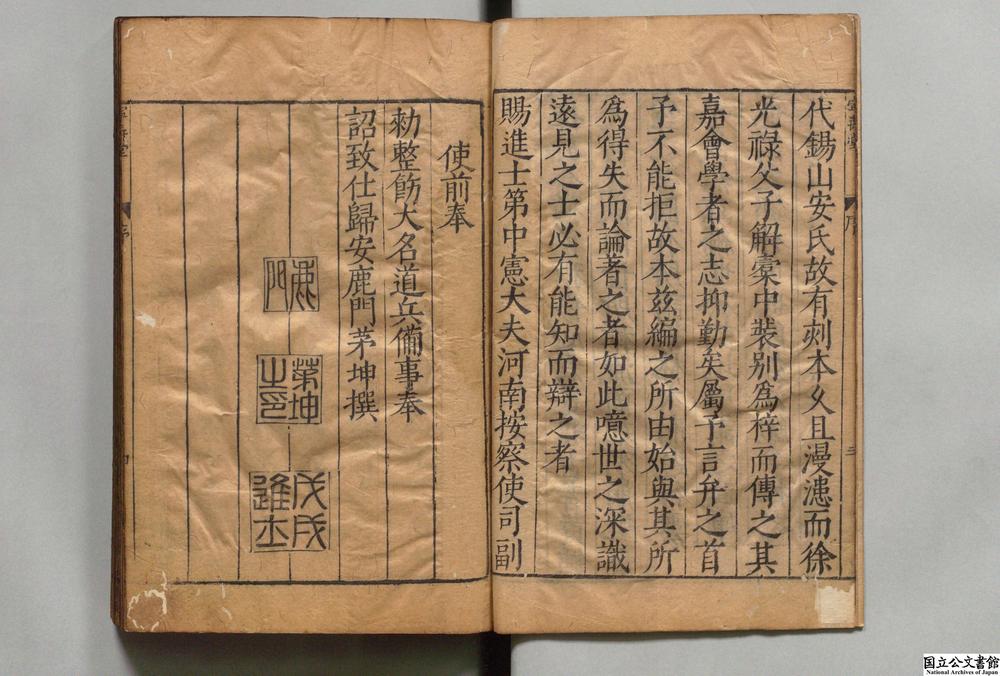 代錫山安氏故有刻本久且漫漶而徐
光祿父子解橐中裝别爲梓而傳之其
嘉會學者之志抑勤矣屬予言弁之首
予不能拒故本兹編之所由始與其所
爲得失而論著之者如此噫世之深識
遠見之士必有能知而辯之者
賜進士第中憲大夫河南按察使司副
使前奉
勑整飭大名道兵備事奉
詔致仕歸安鹿門茅坤撰
鹿門
茅坤之印
戊戌進士
序
三
序
国立公文書館
National Archives of Japan